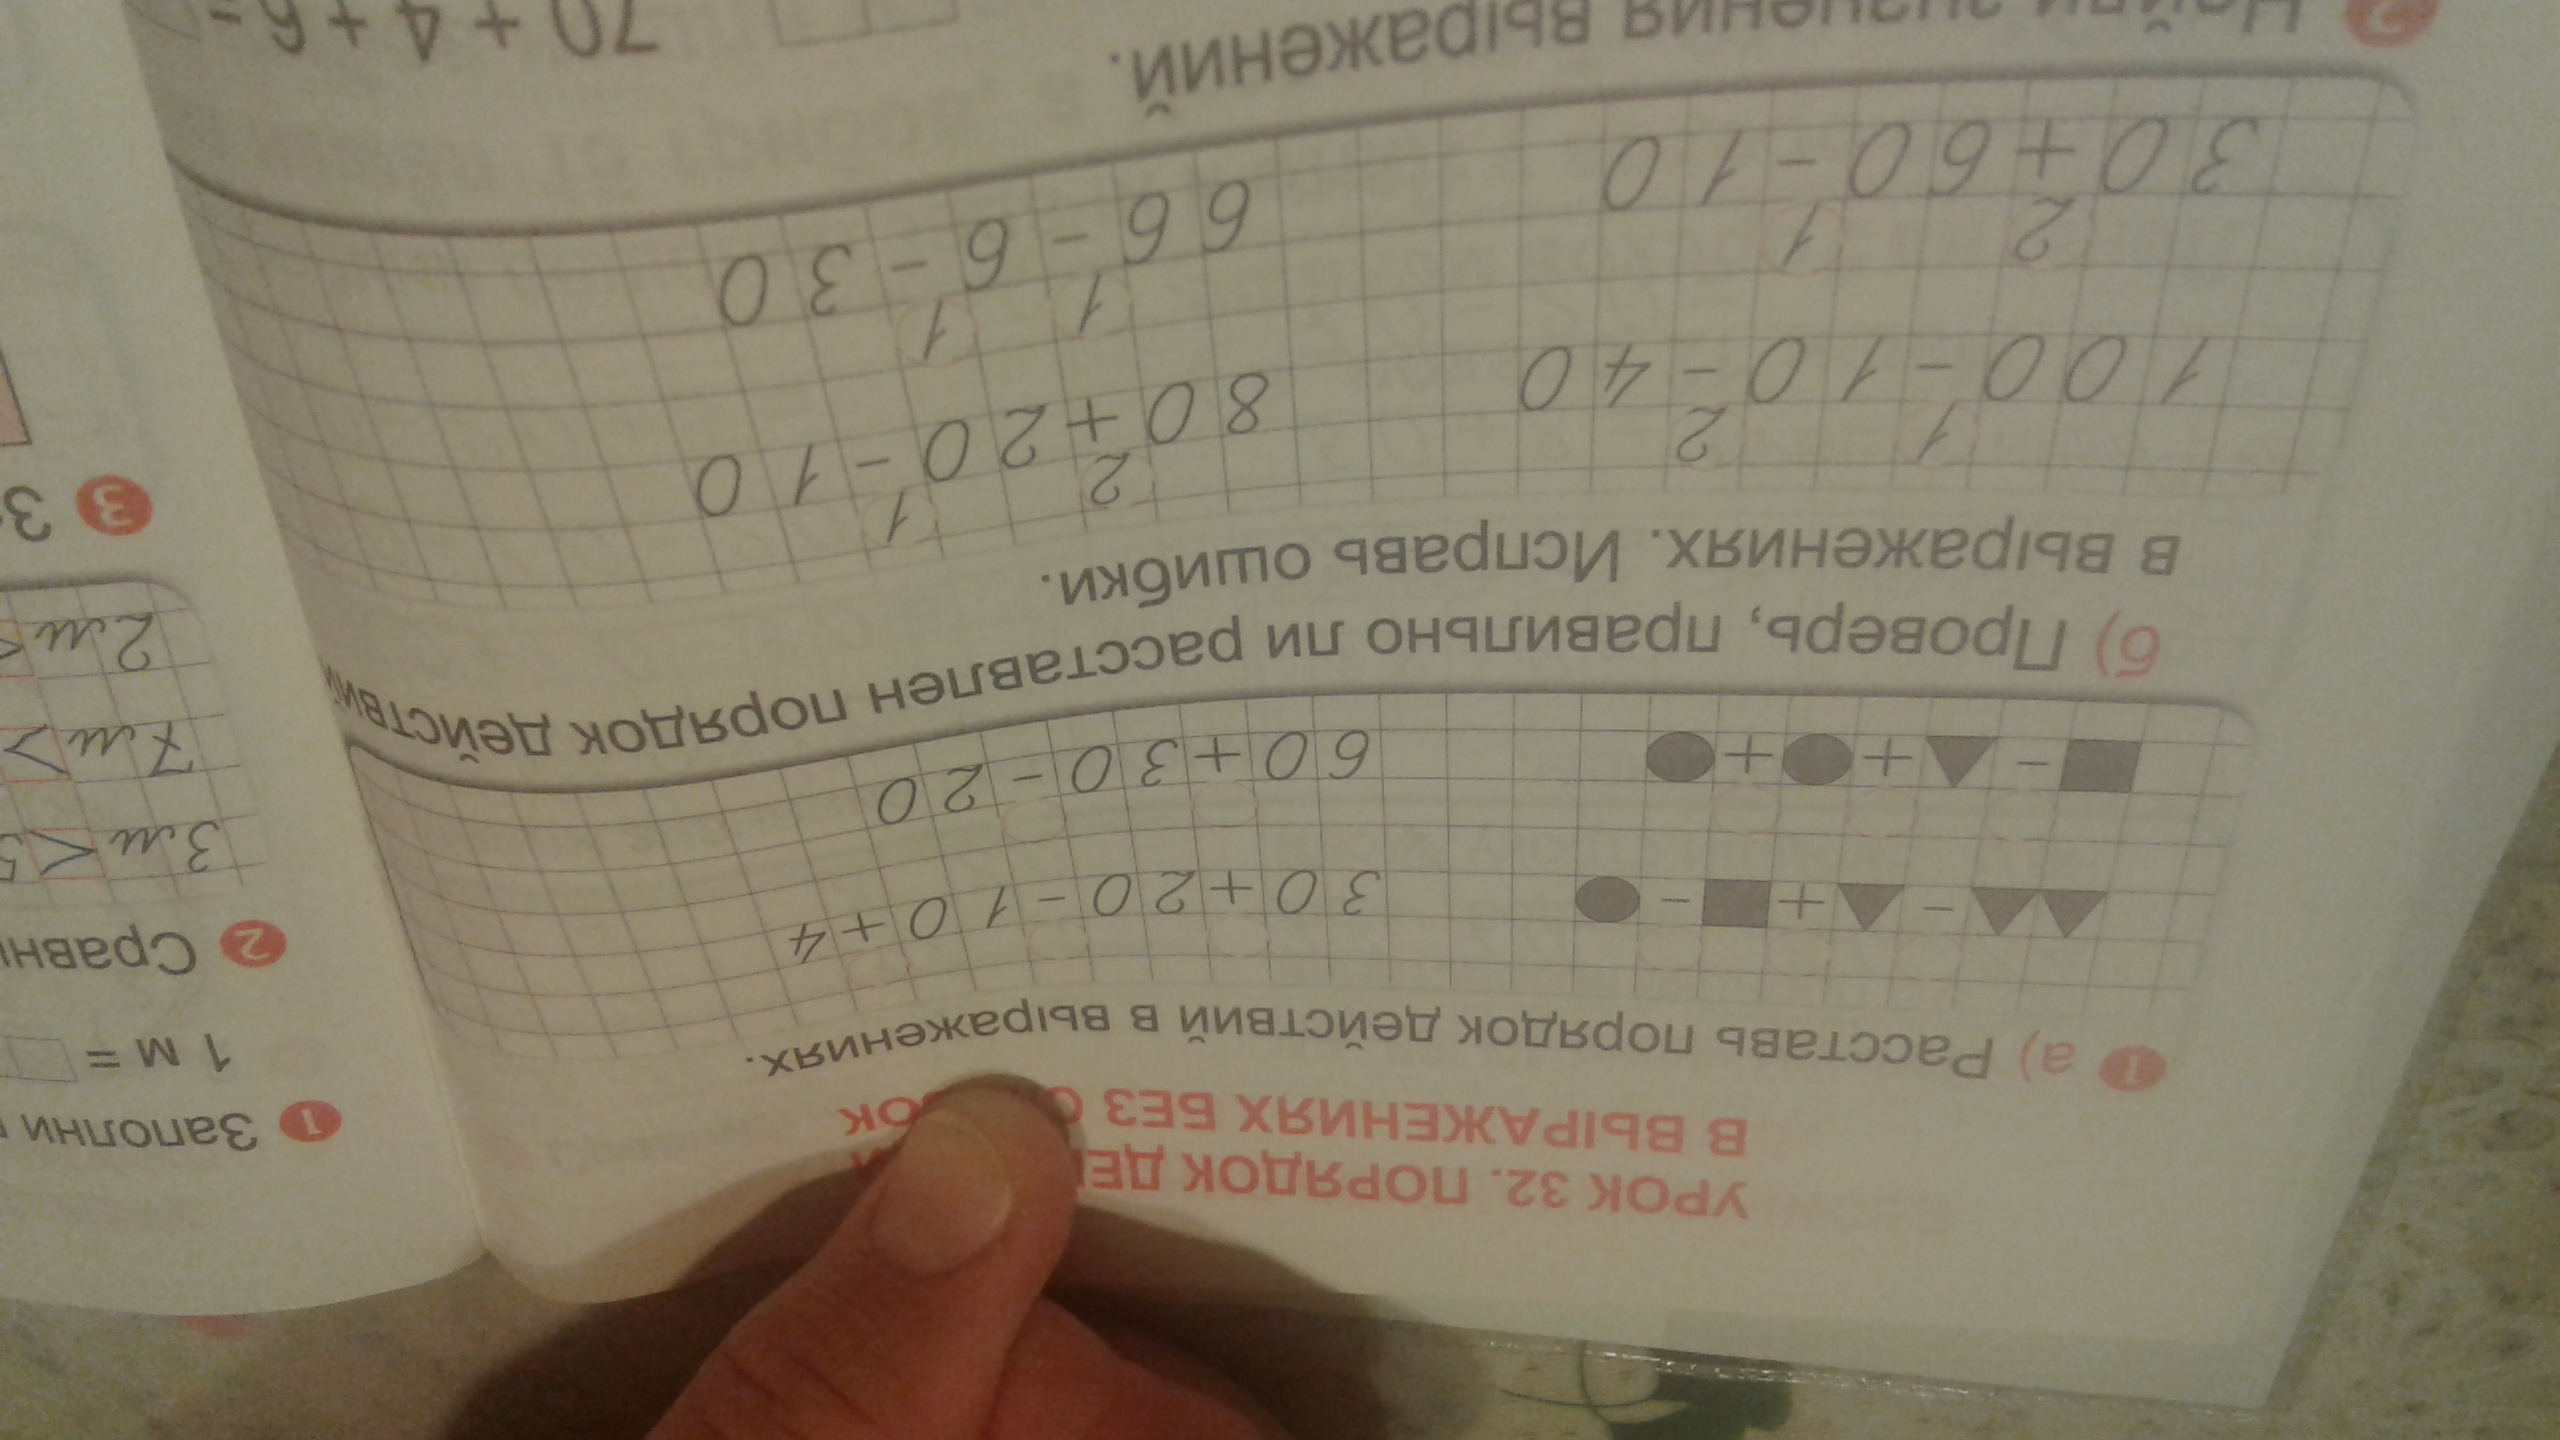 УРОК 32. ПОРЯДОК
В ВЫРАЖЕНИЯХ БЕЗ
1 а) Расставь порядок действий в выражениях.
30+20-10+4
60+30-20
б) Проверь, правильно ли расставлен порядок действи
в выражениях. Исправь ошибки.
1 2
100-10-40
2 1
80+20-10
2 1
30+60-10
1 1
66-6-30
2 Найди значения выражений.
70+4+6=
1 Заполни
1 м =
2 Сравн
3м<5
7м>
2м<
3